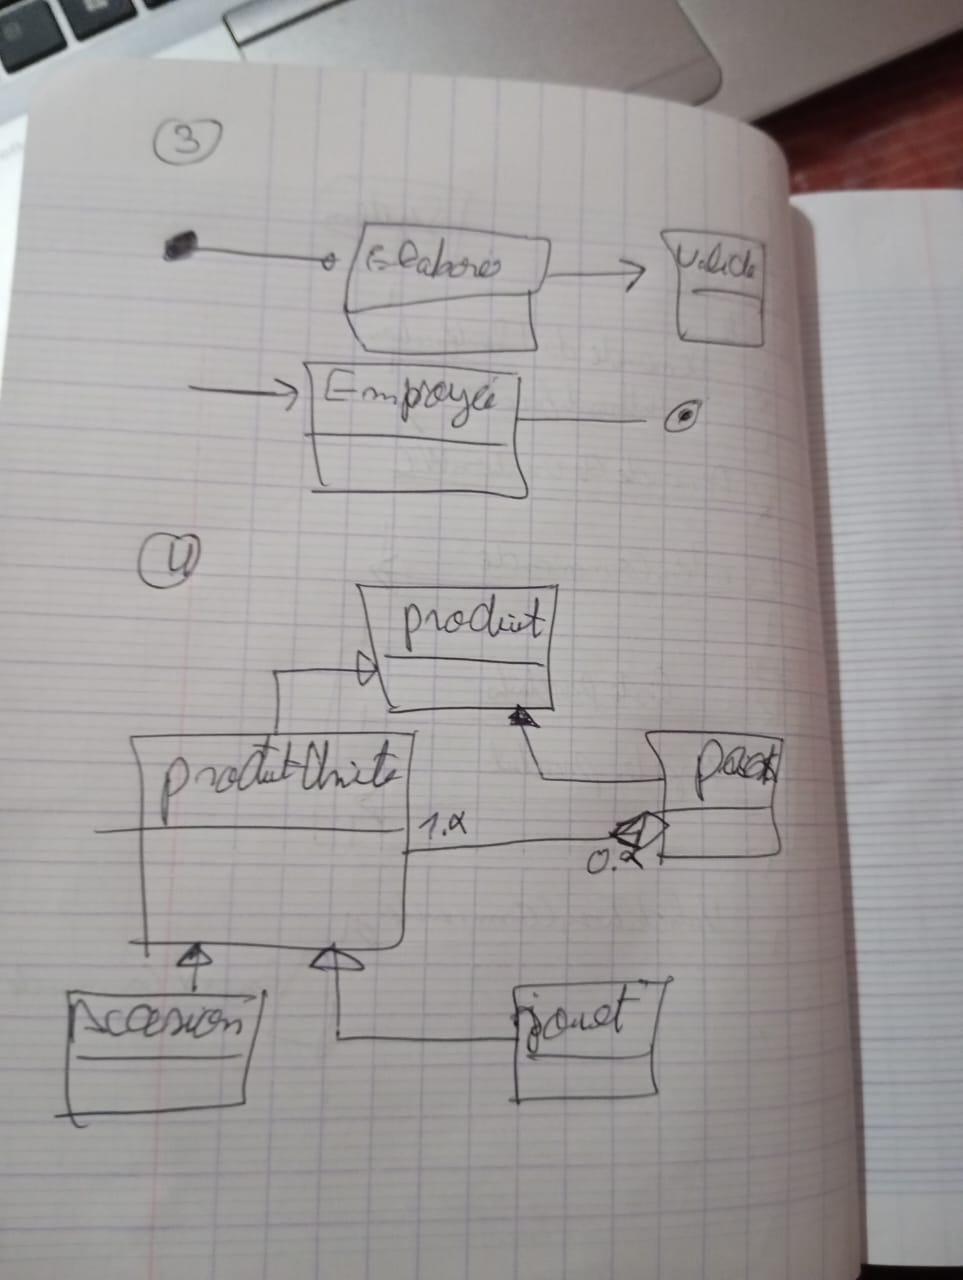 3
Elaborer
Valide
Employée
4
produit
produit Unite
pack
1.*
0.*
Accesion
jouet